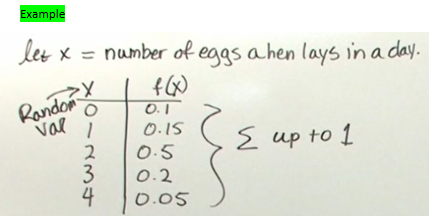 Example
let x = number of eggs a hen lays in a day.
X f(x)
Random Val
0 0.1
1 0.15
2 0.5
3 0.2
4 0.05
Σ up to 1